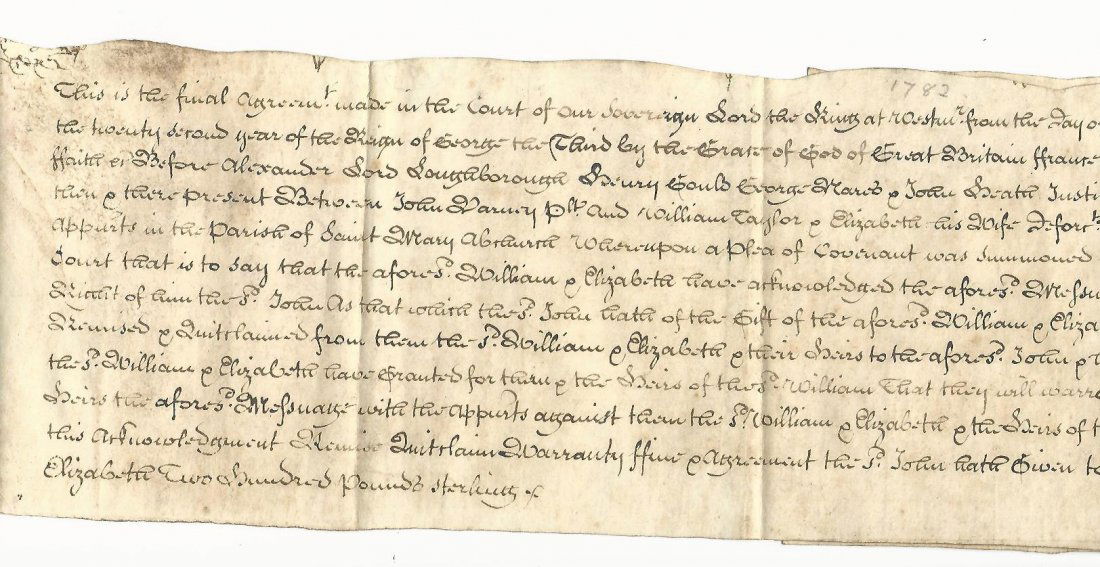 1782
This is the final Agreemt. made in the Court of our Sovereign Lord the King at Westmr. from the Day o
the twenty second year of the Reign of George the Third by the Grace of God of Great Britain ffrance
ffaith &c Before Alexander Lord Loughborough Henry Gould George Nares & John Heath Justi
then & there present Between John Varney Plt. And William Taylor & Elizabeth his Wife Deforts.
Appurts in the Parish of Saint Mary Abchurch Whereupon a Plea of Covenant was summoned
Court that is to say that the afores.d William & Elizabeth have acknowledged the afores.d Messu
Right of him the s.d John As that which the s.d John hath of the Gift of the afores.d William & Eliza
Remised & Quitclaimed from them the s.d William & Elizabeth & their Heirs to the afores.d John &
the s.d William & Elizabeth have Granted for them & the Heirs of the s.d William That they will warr
Heirs the afores.d Messuage with the Appurts against them the s.d William & Elizabeth & the Heirs of t
this Acknowledgment Remise Quitclaim Warranty ffine & Agreement the s.d John hath Given to
Elizabeth Two Hundred Pounds sterling